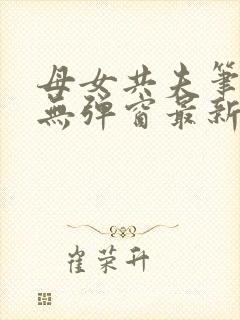 母女共夫筆
無彈窗最新
崔荣升